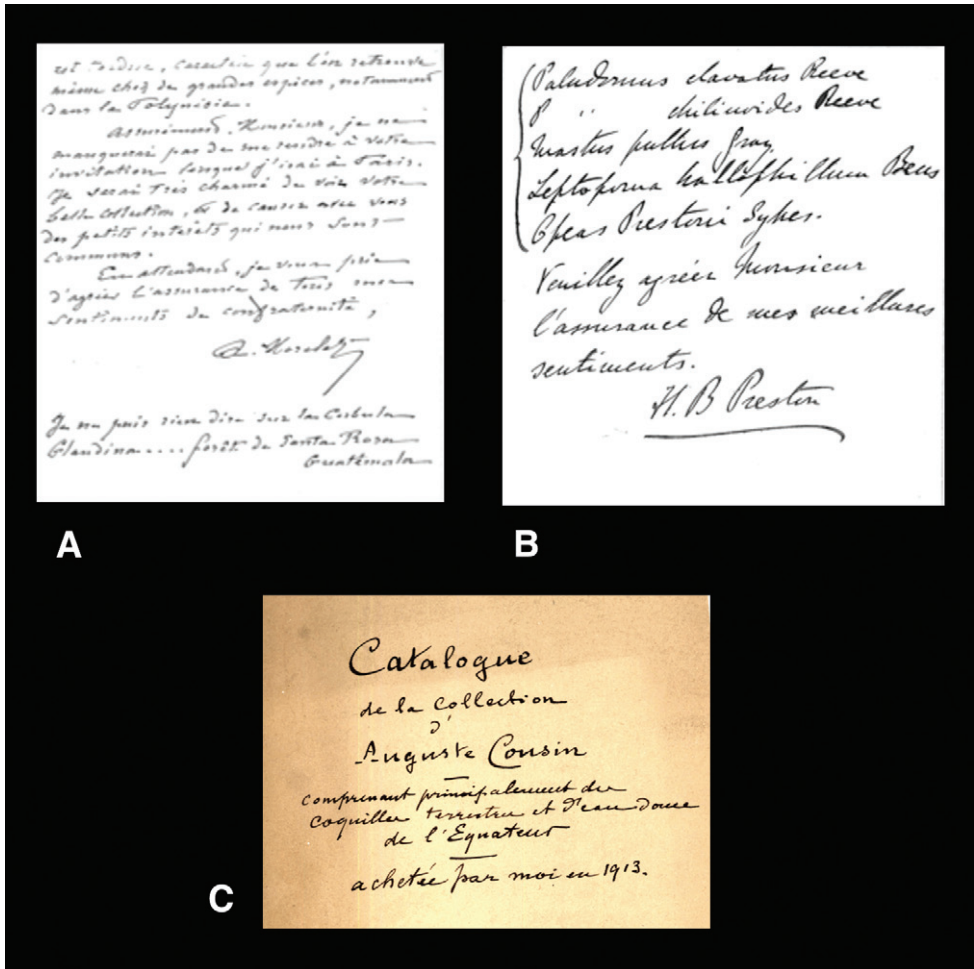 est tordue, caractère que l'on retrouve
même chez de grandes espèces, notamment
dans la Polynésie.
Assurément, Monsieur, je ne
manquerai pas de me rendre à votre
invitation lorsque j'irai à Paris.
Je serai très charmé de voir votre
belle collection, & de causer avec vous
des petits intérêts qui nous sont
communs.
En attendant, je vous prie
d'agréer l'assurance de tous mes
sentiments de confraternité,
A. Morelet
Je ne puis rien dire sur la
Glandina .... forêt de Santa Rosa
Guatemala
A
Paludomus clavatus Reeve
P " chilinoides Reeve
Mastus pullus Gray
Leptopoma Bens
Opeas Prestoni Sykes.
Veuillez agréer Monsieur
l'assurance de mes meillures
sentiments.
H. B Preston
B
Catalogue
de la Collection
d'
Auguste Cousin
comprenant principalement des
coquilles terrestres et d'eau douce
de l'Equateur
achetée par moi en 1913.
C